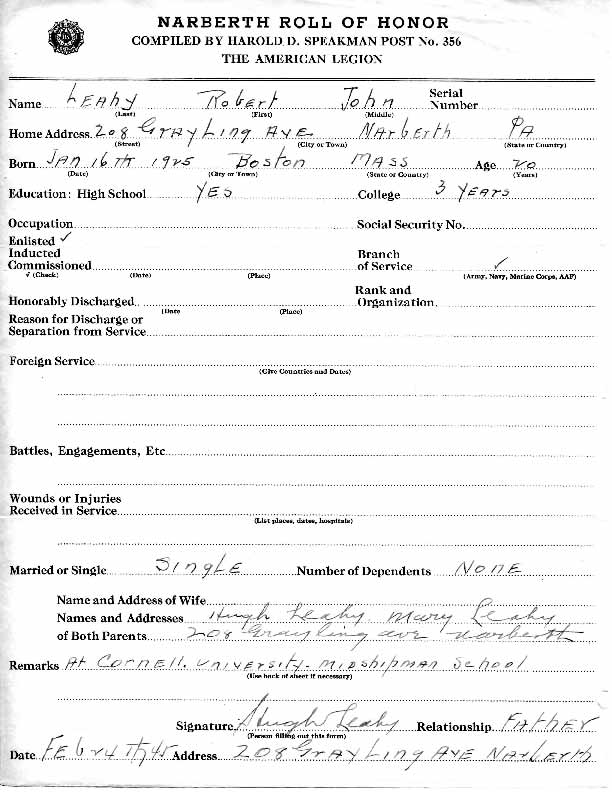 NARBERTH ROLL OF HONOR
COMPILED BY HAROLD D. SPEAKMAN POST No. 356
THE AMERICAN LEGION
Name LEAHY Robert John Serial Number
(Last) (First) (Middle)
Home Address 208 GRAYLING AVE Narberth PA
(Street) (City or Town) (State or Country)
Born JAN 16TH 1925 Boston MASS Age 20
(Date) (City or Town) (State or Country) (Years)
Education: High School YES College 3 YEARS
Occupation Social Security No.
Enlisted ✓
Inducted Branch
Commissioned of Service ✓
√ (Check) (Date) (Place) (Army, Navy, Marine Corps, AAF)
Rank and
Honorably Discharged Organization
(Date (Place)
Reason for Discharge or
Separation from Service
Foreign Service
(Give Countries and Dates)
Battles, Engagements, Etc
Wounds or Injuries
Received in Service
(List places, dates, hospitals)
Married or Single SINGLE Number of Dependents NONE
Name and Address of Wife
Names and Addresses Hugh Leahy. Mary Leahy
of Both Parents 208 Grayling ave Narberth
Remarks At CORNELL. UNIVERSITY. MIDSHIPMAN School
(Use back of sheet if necessary)
Signature Hugh Leahy Relationship FATHER
(Person filling out this form)
Date FEb 24Th 45 Address 208 GRAYLING AVE NARbERTH